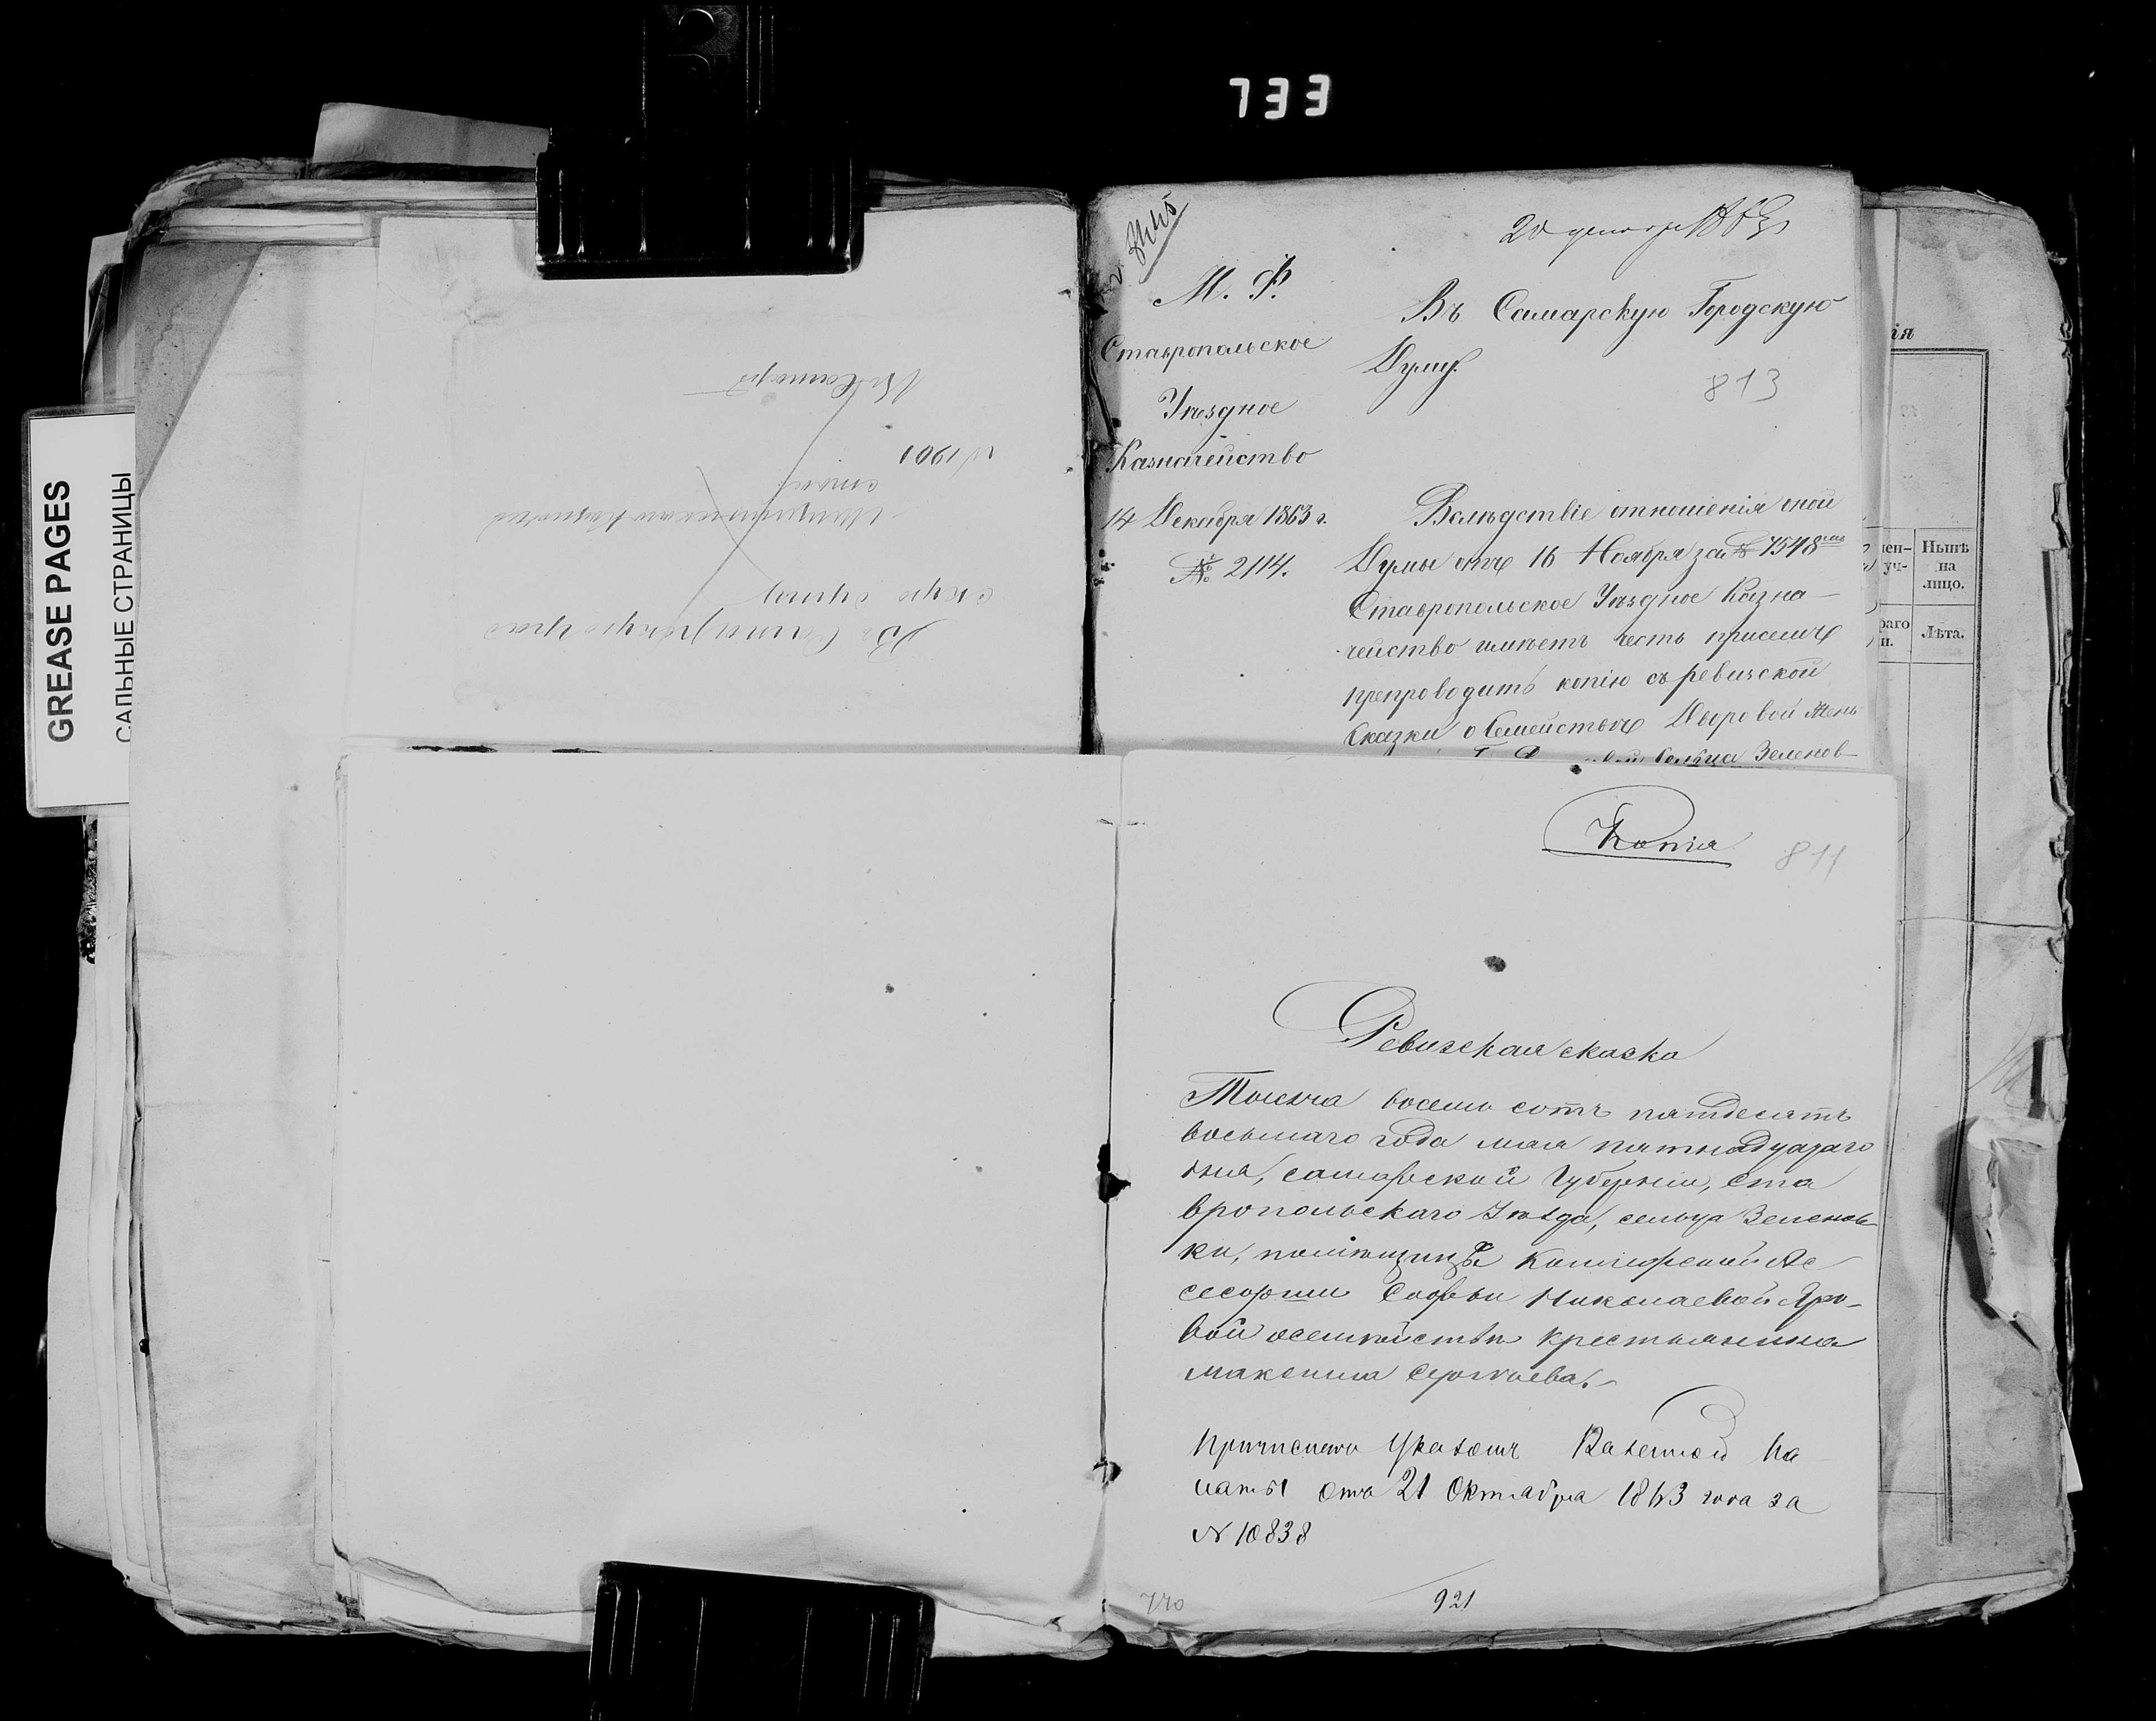 733
GREASE PAGES
САЛЬНЫЕ СТРАНИЦЫ
въ Самарѣ
№ 1901
Въ Самарскую град
скую думу
20 декабря 1863
М. Ф.
Ставропольское
Уѣздное
Казначейство
14 Декабря 1863 г.
№ 2114.
Въ Самарскую Городскую
Думу.
813
Вслѣдствіе отношенія оной
Думы отъ 16 Ноября за № 7548
Ставропольское Уѣздное Казна-
чейство имѣетъ честь присемъ
препроводить копію съ ревизской
Сказки о Семействѣ Дворовой Жен
сельца Зеленов-
ія
чен-
уч-
раго
н.
Нынѣ
на
лицо.
Лѣта.
Копія
811
Ревизская сказка
Тысяча восемь сотъ пятдесятъ
восьмаго года мая пятнадцатаго
дня, самарской Губерніи, Ста
вропольскаго Уѣзда, сельца Зеленов-
ки, помѣщицы Коллежской Ас
сесорши Софьи Николаевой
вой осемѣйствѣ крестьянина
максима Сергѣева.
Причислено Указомъ Казенной Па
латы отъ 21 Октября 1863 года за
№ 10838
770
921